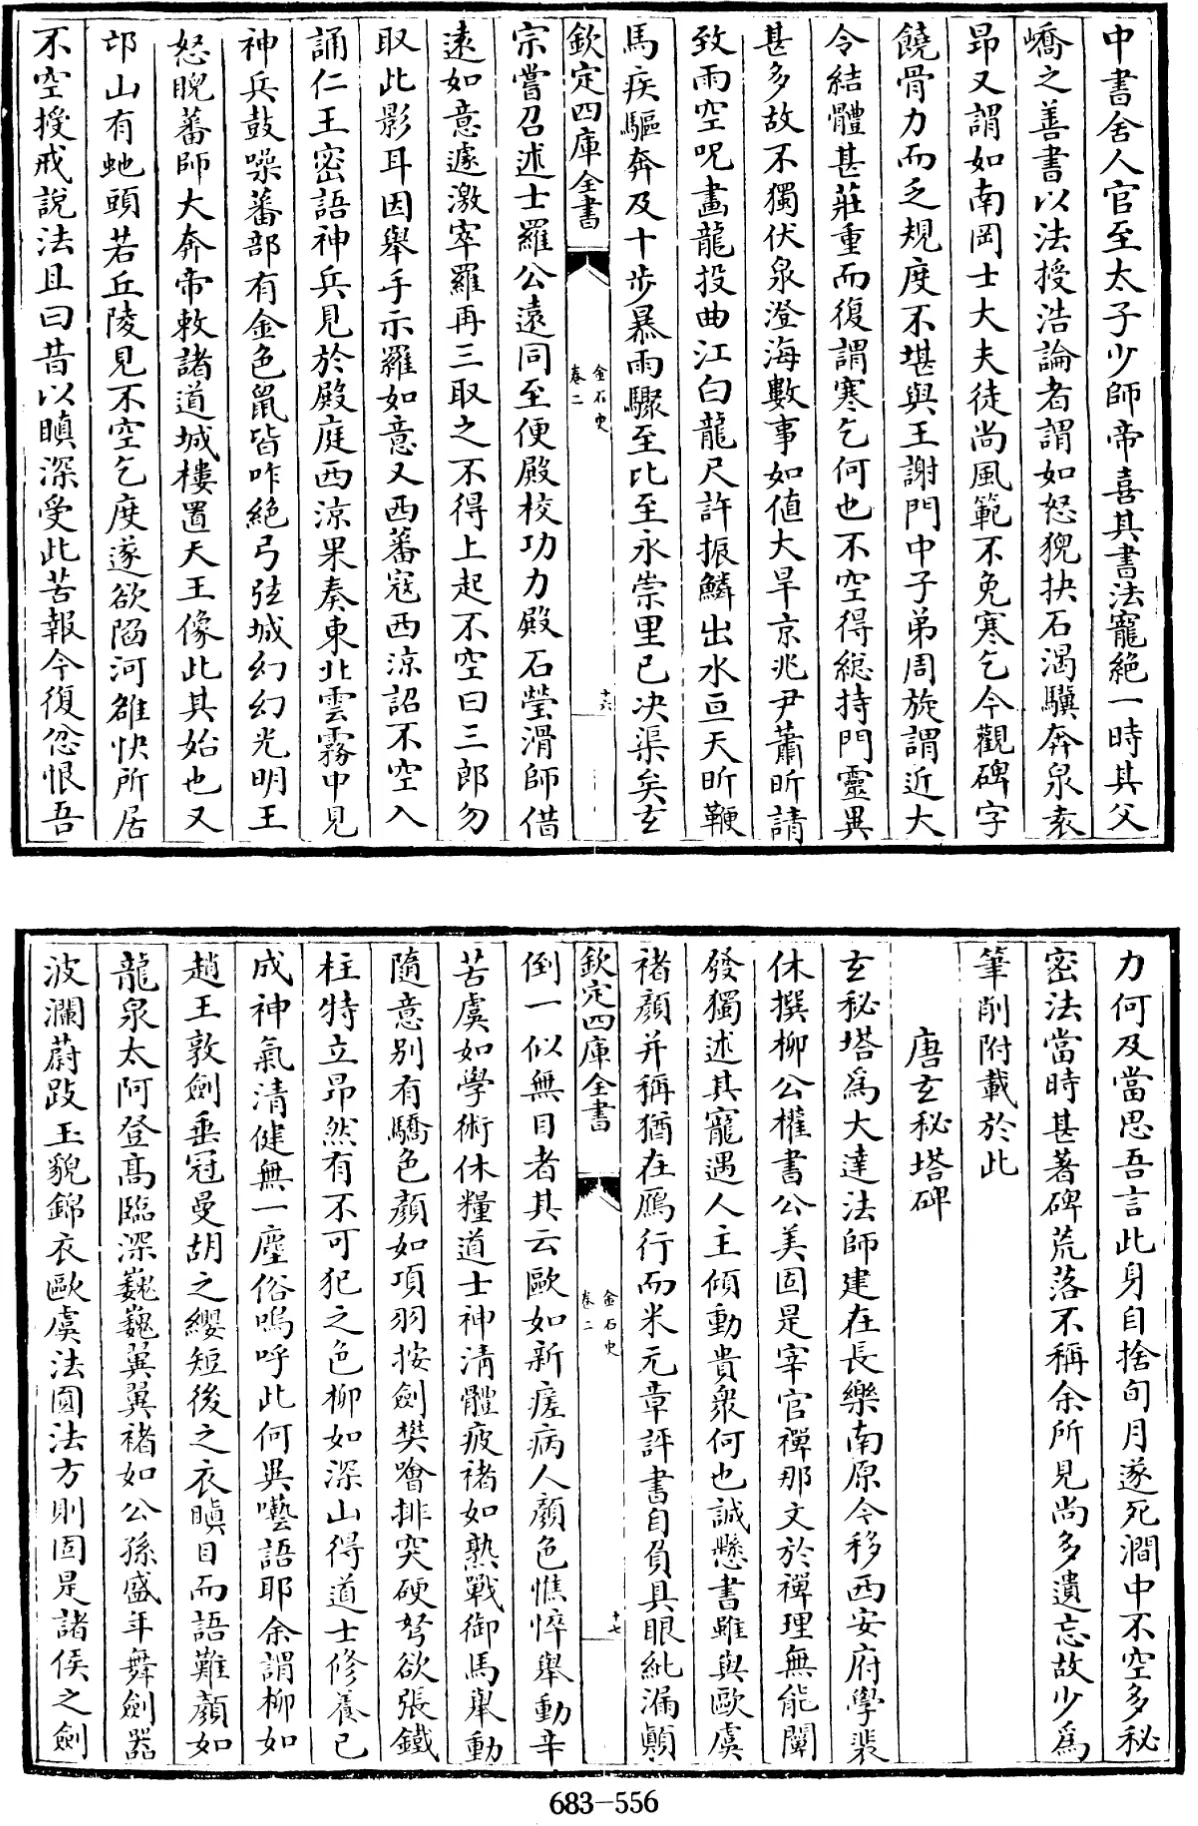 中書舍人官至太子少師帝喜其書法寵絕一時其父
嶠之善書以法授浩論者謂如怒猊抉石渴驥奔泉袁
昂又謂如南岡士大夫徒尚風範不免寒乞今觀碑字
饒骨力而乏規度不堪與王謝門中子弟周旋謂近大
令結體甚莊重而復謂寒乞何也不空得總持門靈異
甚多故不獨伏泉澄海數事如值大旱京兆尹蕭昕請
致雨空呪畫龍投曲江白龍尺許振鱗出水亘天昕鞭
馬疾驅奔及十步暴雨驟至比至永崇里已決渠矣玄
欽定四庫全書
金石史
卷二
十六
宗嘗召述士羅公遠同至便殿校功力殿石瑩滑師借
遠如意遽激宰羅再三取之不得上起不空曰三郎勿
取此影耳因舉手示羅如意又西蕃寇西涼詔不空入
誦仁王密語神兵見於殿庭西涼果奏東北雲霧中見
神兵鼓噪蕃部有金色鼠皆咋絕弓弦城幻幻光明王
怒睨蕃師大奔帝敕諸道城樓置天王像此其始也又
邙山有虵頭若丘陵見不空乞度遂欲陷河雒快所居
不空授戒說法且曰昔以瞋深受此苦報今復忿恨吾
力何及當思吾言此身自捨旬月遂死澗中不空多秘
密法當時甚著碑荒落不稱余所見尚多遺忘故少為
筆削附載於此
唐玄秘塔碑
玄秘塔為大達法師建在長樂南原今移西安府學裴
休撰柳公權書公美固是宰官禪那文於禪理無能闡
發獨述其寵遇人主傾動貴衆何也誠懸書雖與歐虞
褚顏并稱猶在鴈行而米元章評書自負具眼紕漏顛
欽定四庫全書
金石史
卷二
十七
倒一似無目者其云歐如新瘥病人顏色憔悴舉動辛
苦虞如學術休糧道士神清體疲褚如熟戰御馬舉動
隨意別有驕色顏如項羽按劍樊噲排突硬弩欲張鐵
柱特立昂然有不可犯之色柳如深山得道士修養已
成神氣清健無一塵俗嗚呼此何異囈語耶余謂柳如
趙王敦劍垂冠曼胡之纓短後之衣瞋目而語難顏如
龍泉太阿登高臨深巍巍翼翼褚如公孫盛年舞劍器
波瀾蔚跂玉貌錦衣歐虞法圓法方則固是諸侯之劍
683-556